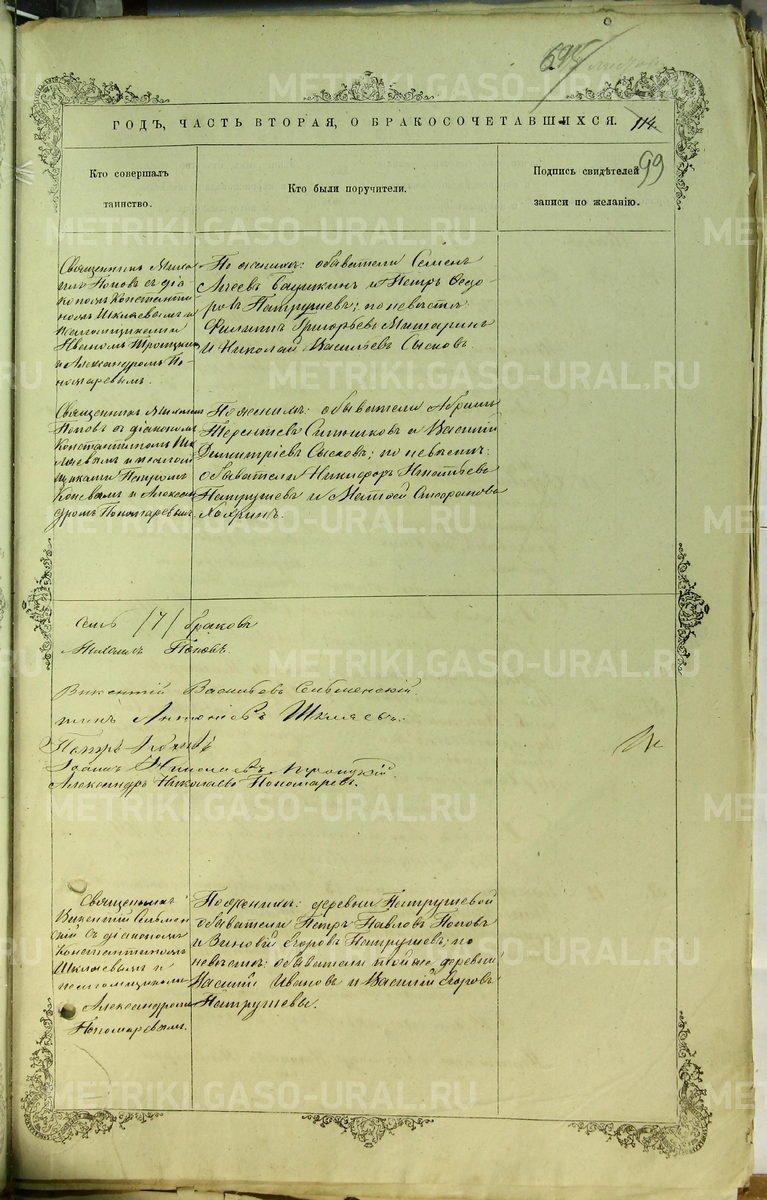 695
ГОДЪ, ЧАСТЬ ВТОРАЯ, О БРАКОСОЧЕТАВШИХСЯ.
114
99
Кто совершалъ
таинство.
Кто были поручители.
Подпись свидѣтелей
записи по желанію.
Священникъ Миха-
илъ Поповъ съ діа-
кономъ Константи-
номъ Шкляевымъ и
псаломщиками
Иваномъ Троицкимъ
и Александромъ По-
номаревымъ.
По женихѣ: обыватели Семенъ
и Петръ Ѳедо-
ровъ Патрушевъ; по невѣстѣ:
Филиппъ Григорьевъ
и Николай Васильевъ Сысковъ.
Священникъ Михаилъ
Поповъ съ діакономъ
Константиномъ Шк-
ляевымъ и псалом-
щиками Петромъ
и Алексан-
дромъ Пономаревымъ
По женихѣ: обыватели Абрамъ
Терентьевъ и Василій
Димитріевъ Сысковъ; по невѣстѣ:
обыватели Никифоръ Игнатьевъ
Патрушевъ и Матвей
Семь /7/ браковъ
Михаилъ Поповъ
Викентій Васильевъ Сельменскій
Антоновъ Шкляевъ.
Петръ
Іоаннъ Николаевъ Троицкій
Александръ Николаевъ Пономаревъ.
Священникъ
Викентій Сельмен-
скій съ діакономъ
Константиномъ
Шкляевымъ и
псаломщикомъ
Александромъ
Пономаревымъ.
По женихѣ: деревни Патрушевой
обыватели Петръ Павловъ Поповъ
и Егоровъ Патрушевъ; по
невѣстѣ: обыватели той же деревни
Василій Ивановъ и Василій Егоровъ
Патрушевы.
METRIKI.GASO-URAL.RU